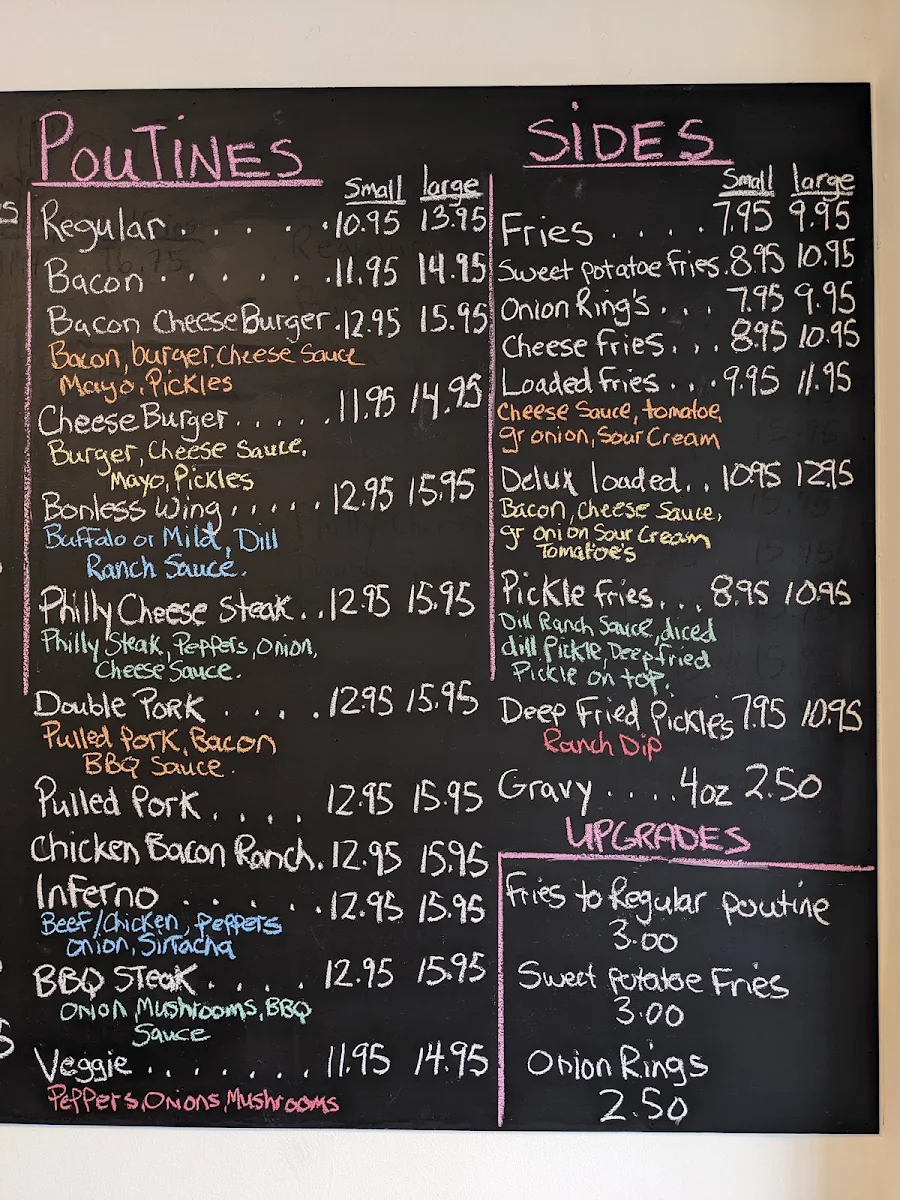 POUTINES
Small large
Regular . . . . . . 10.95 13.95
Bacon . . . . . . . 11.95 14.95
Bacon CheeseBurger . 12.95 15.95
Bacon, burger, Cheese Sauce
Mayo, Pickles
CheeseBurger . . . . . 11.95 14.95
Burger, Cheese Sauce,
Mayo, Pickles
Bonless Wing . . . . . 12.95 15.95
Buffalo or Mild, Dill
Ranch Sauce.
Philly Cheese Steak . . 12.95 15.95
Philly Steak, Peppers, Onion,
Cheese Sauce.
Double Pork . . . . 12.95 15.95
Pulled Pork, Bacon
BBQ Sauce.
Pulled Pork . . . . 12.95 15.95
Chicken Bacon Ranch . 12.95 15.95
Inferno . . . . . . 12.95 15.95
Beef/Chicken, Peppers
Onion, Sirracha
BBQ Steak . . . . 12.95 15.95
Onion, Mushrooms, BBQ
Sauce
Veggie . . . . . . 11.95 14.95
Peppers, Onions, Mushrooms
SIDES
Small large
Fries . . . . . 7.95 9.95
Sweet Potatoe fries . 8.95 10.95
Onion Ring's . . . 7.95 9.95
Cheese fries . . . 8.95 10.95
Loaded fries . . . 9.95 11.95
Cheese Sauce, tomatoe,
gr onion, Sour Cream
Delux loaded . . 10.95 12.95
Bacon, Cheese Sauce,
gr onion Sour Cream
Tomatoe's
Pickle fries . . . 8.95 10.95
Dill Ranch Sauce, diced
dill Pickle, Deepfried
Pickle on top.
Deep Fried Pickles 7.95 10.95
Ranch Dip
Gravy . . . . 4oz 2.50
UPGRADES
Fries to Regular poutine
3.00
Sweet Potatoe Fries
3.00
Onion Rings
2.50